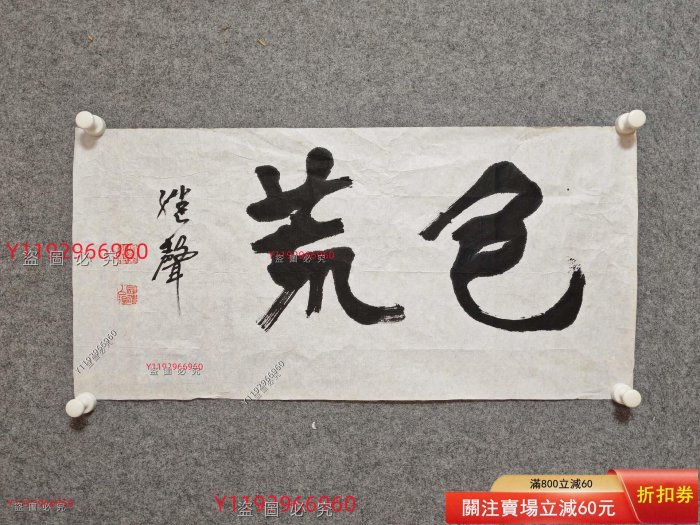 包荒
聲
Y1192966960
盜圖必究
Y1192966960
盜圖必究
Y1192966960
盜圖必究
Y1192966960
盜圖必究
Y1192966960
盜圖必究
Y1192966960
盜圖必究
Y1192966960
盜圖必究
滿800立減60
關注賣場立減60元
折扣券